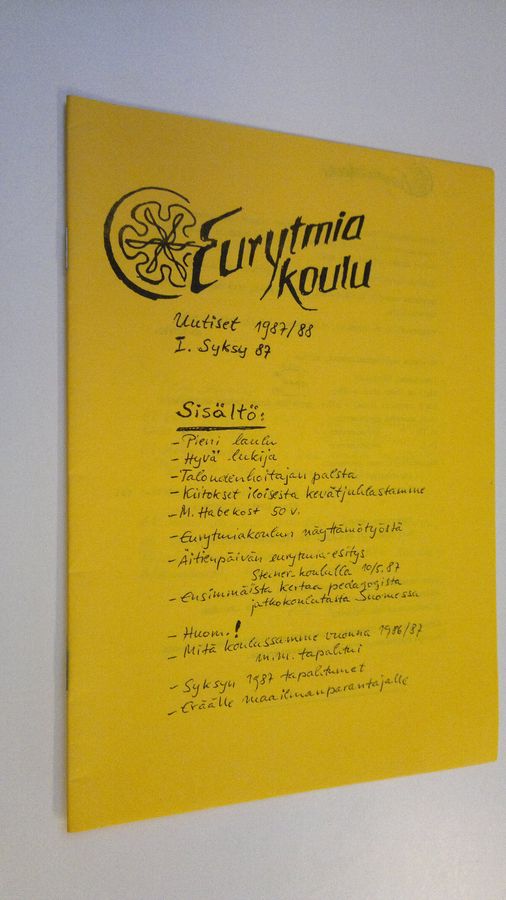 Eurytmia
koulu
Uutiset 1987/88
I. Syksy 87
Sisältö:
- Pieni laulu
- Hyvä lukija
- Taloudenhoitajan palsta
- Kiitokset iloisesta kevätjuhlastamme
- M. Habekost 50 v.
- Eurytmiakoulun näyttämötyöstä
- Äitienpäivän eurytmia-esitys
Steiner-koululla 10/5.87
- Ensimmäistä kertaa pedagogista
jatkokoulutusta Suomessa
- Huom.!
- Mitä koulussamme vuonna 1986/87
m.m. tapahtui
- Syksyn 1987 tapahtumet
- Eräälle maailmanparantajalle